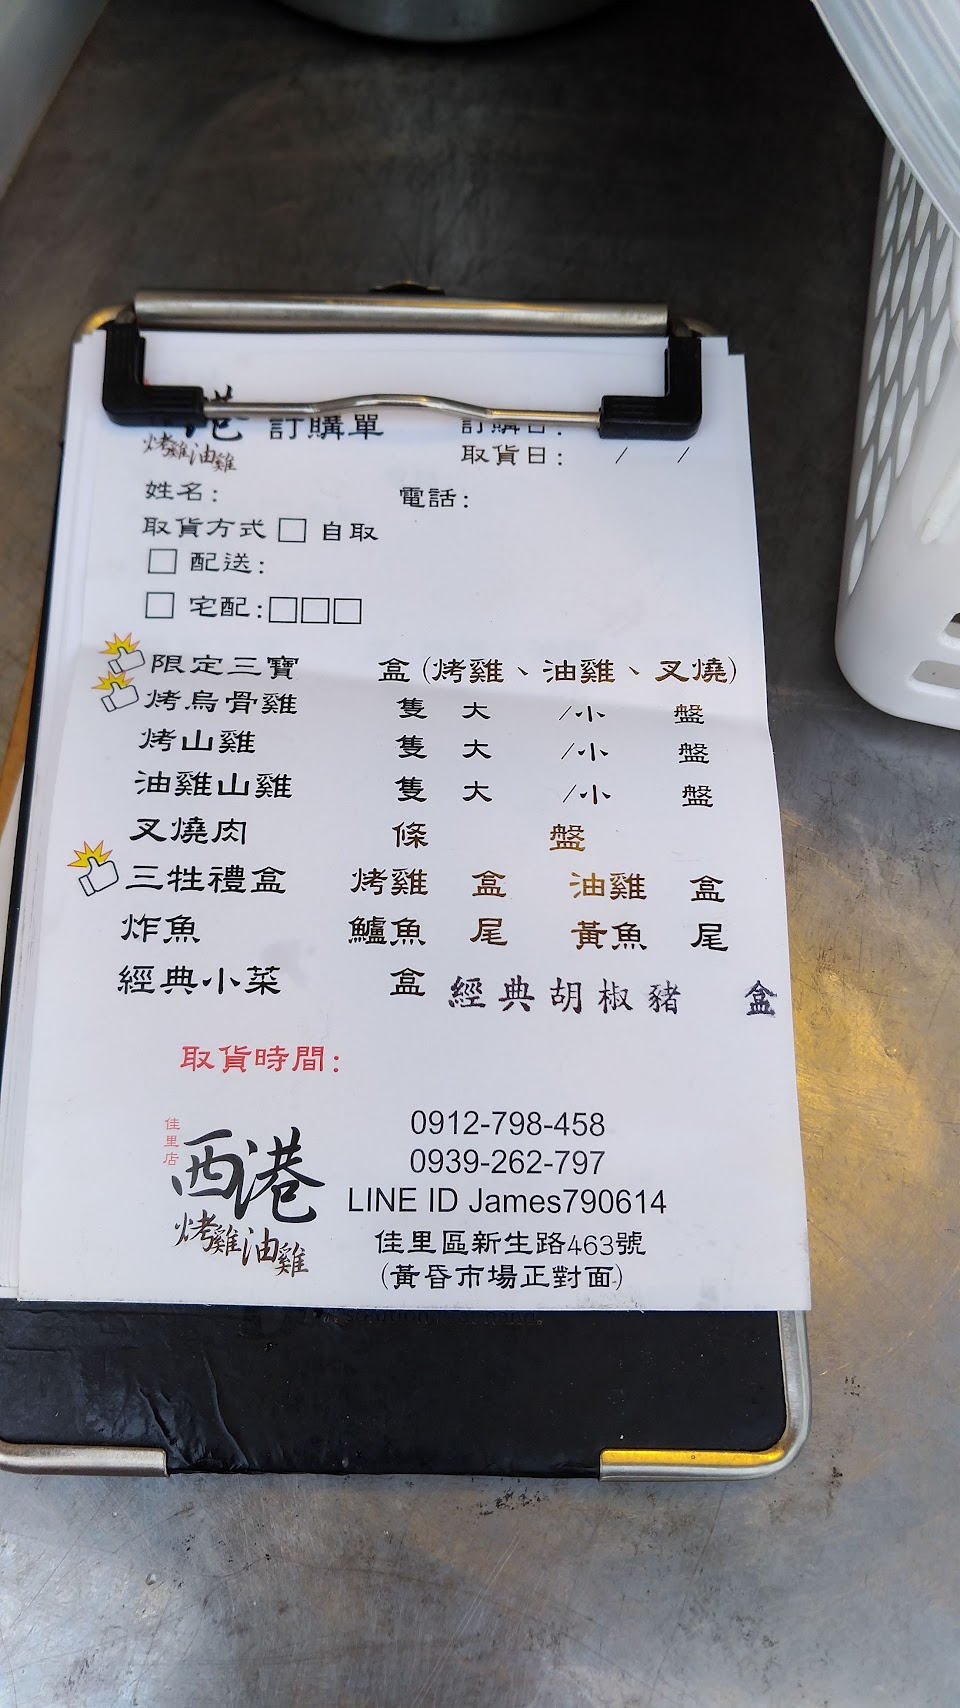 港 訂購單
訂購日:
烤雞油雞
取貨日: / /
姓名: 電話:
取貨方式 □ 自取
□ 配送:
□ 宅配:□□□
限定三寶 盒(烤雞、油雞、叉燒)
烤烏骨雞 隻 大 /小 盤
烤山雞 隻 大 /小 盤
油雞山雞 隻 大 /小 盤
叉燒肉 條 盤
三牲禮盒 烤雞 盒 油雞 盒
炸魚 鱸魚 尾 黃魚 尾
經典小菜 盒 經典胡椒豬 盒
取貨時間:
佳里店
西港
烤雞油雞
0912-798-458
0939-262-797
LINE ID James790614
佳里區新生路463號
(黃昏市場正對面)